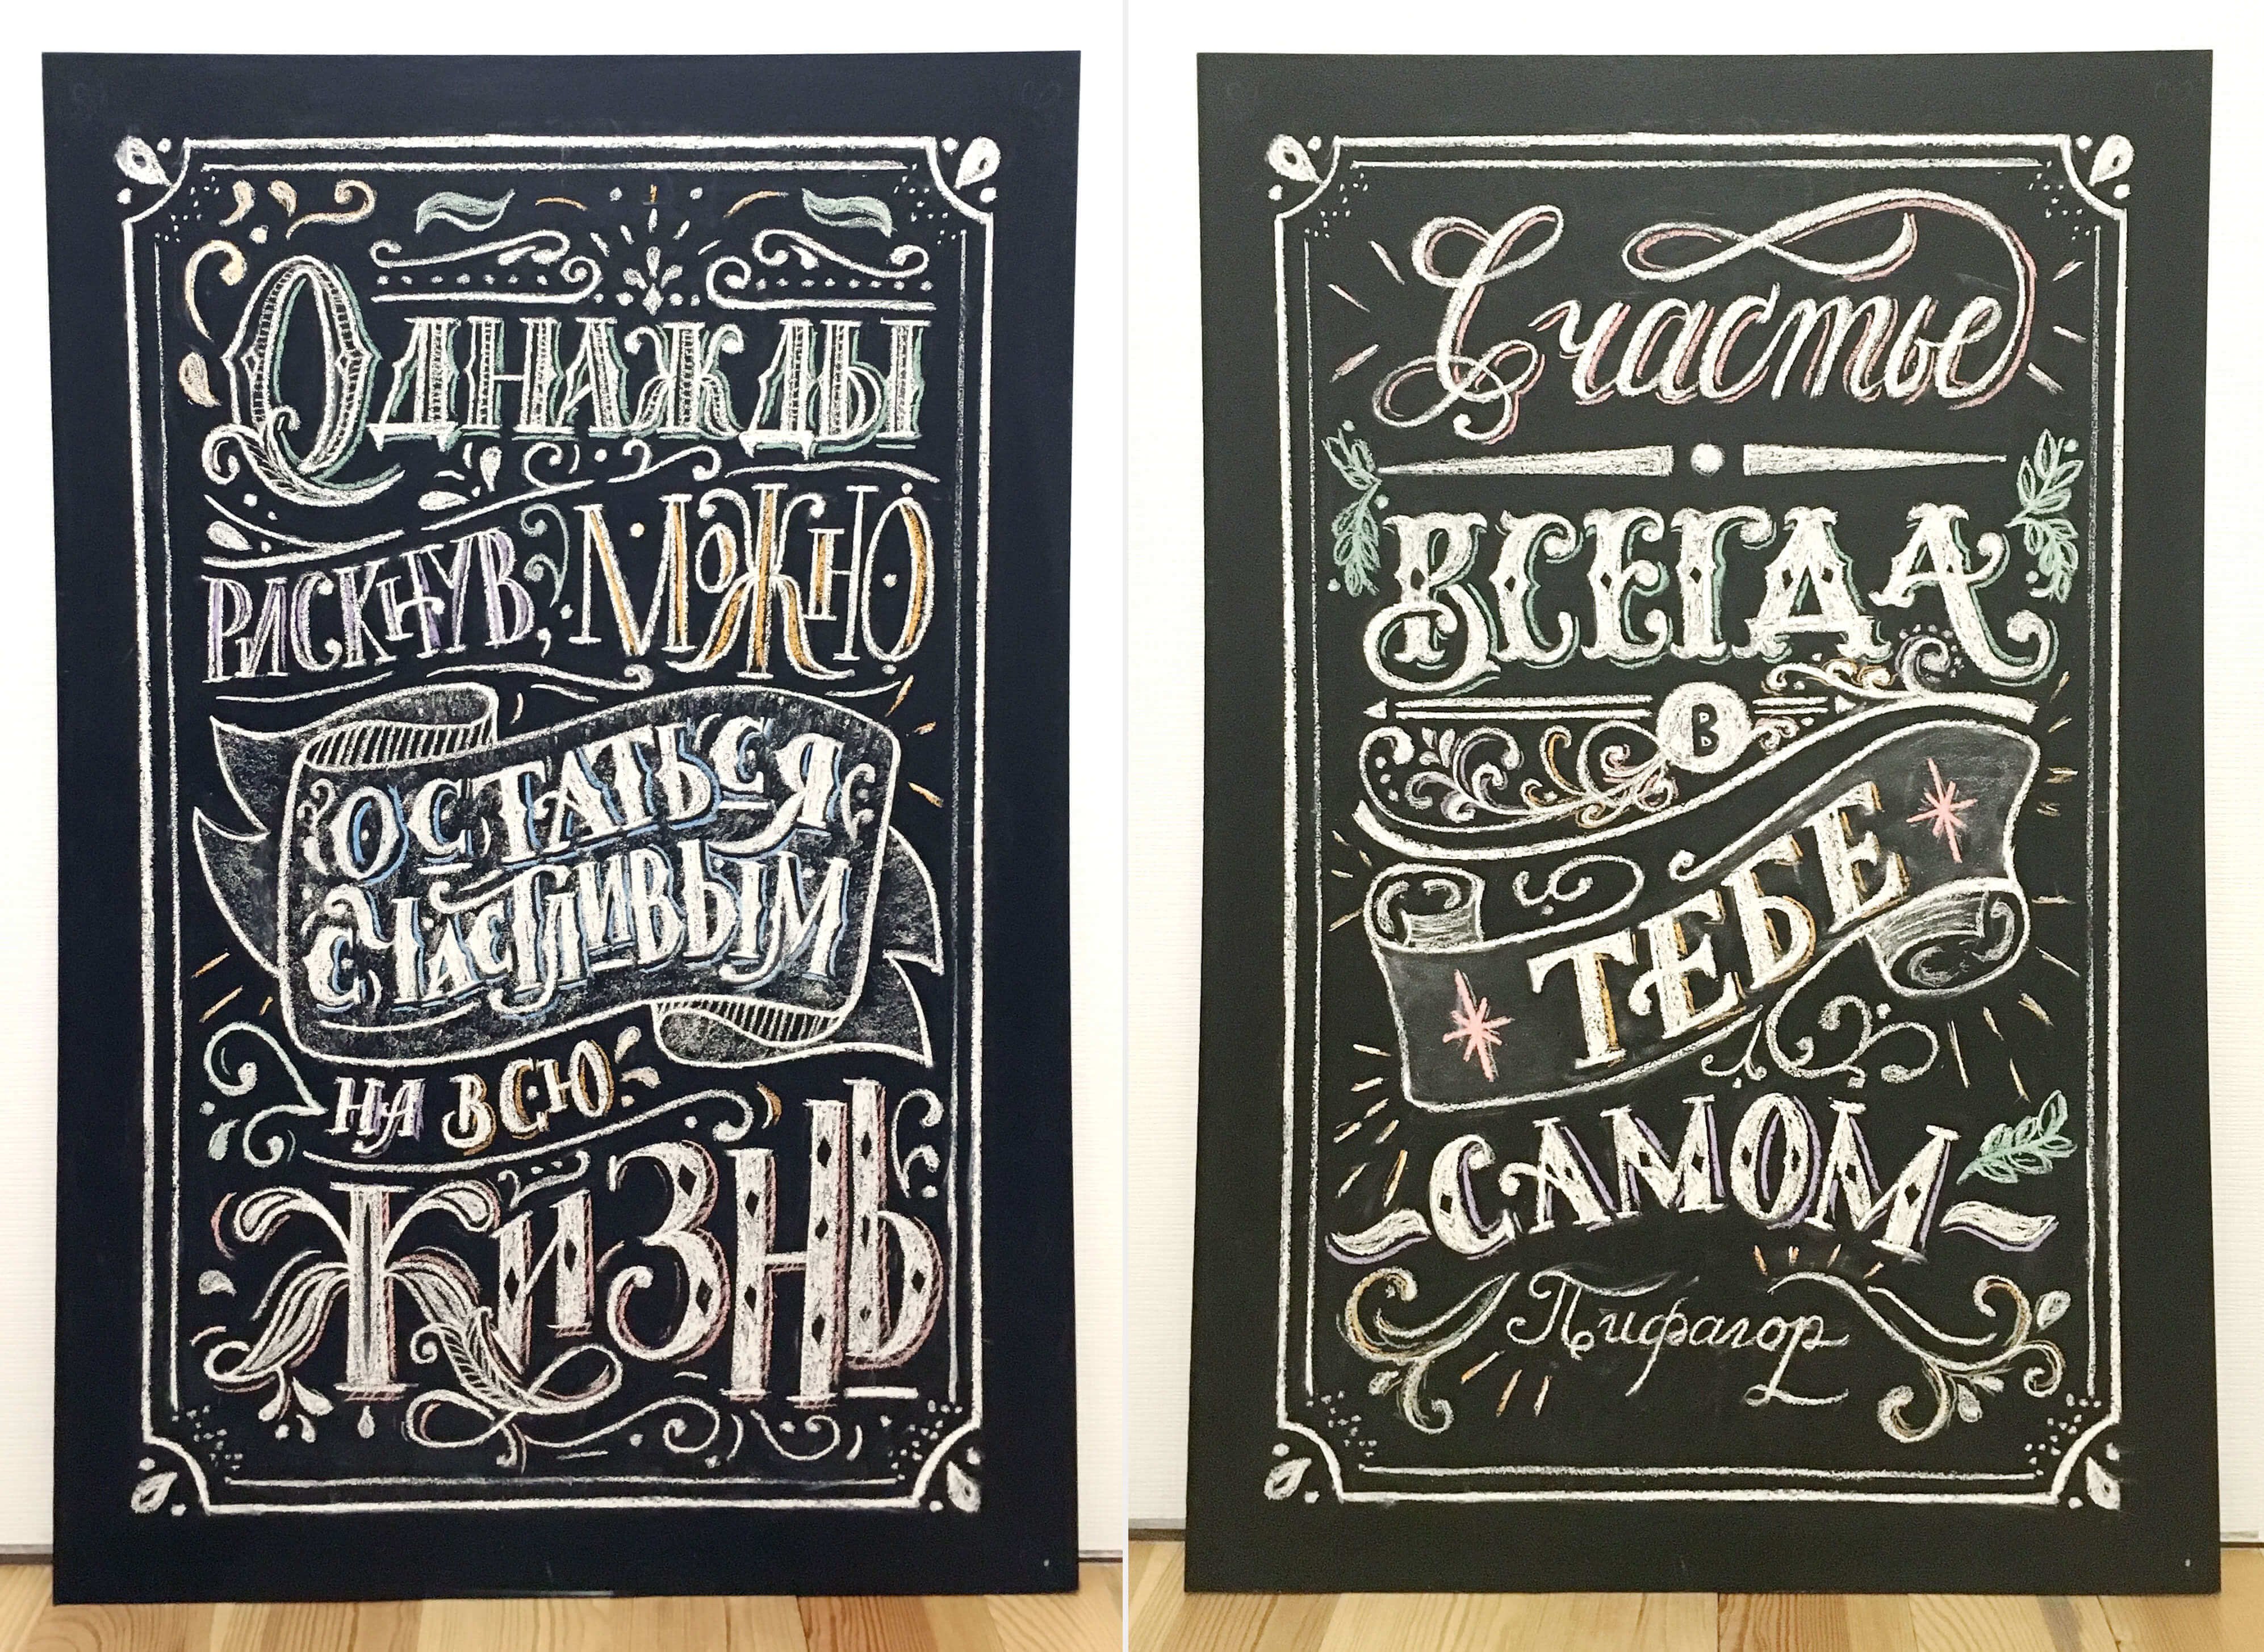 Однажды
рискнув, можно
остаться
счастливым
на всю
жизнь
Счастье
всегда
в
тебе
самом
Пифагор